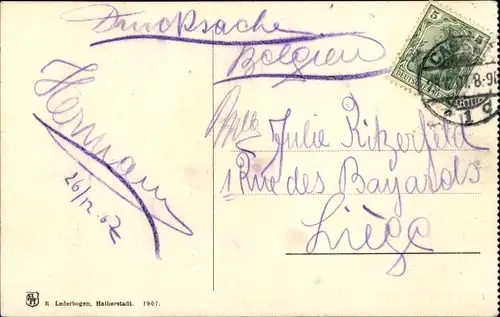 Drucksache
Belgien
Hermann
26/12.07
Mlle
Julie Ritzerfeld
1 Rue des Bayards
Liège
5
8-9
1 c
R Lederbogen, Halberstadt. 1907.